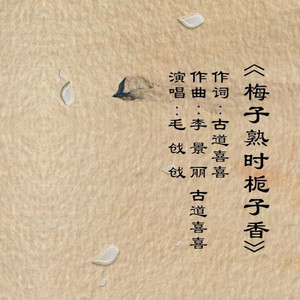 《梅子熟时栀子香》
作词：古道喜喜
作曲：李景丽 古道喜喜
演唱：毛戗戗